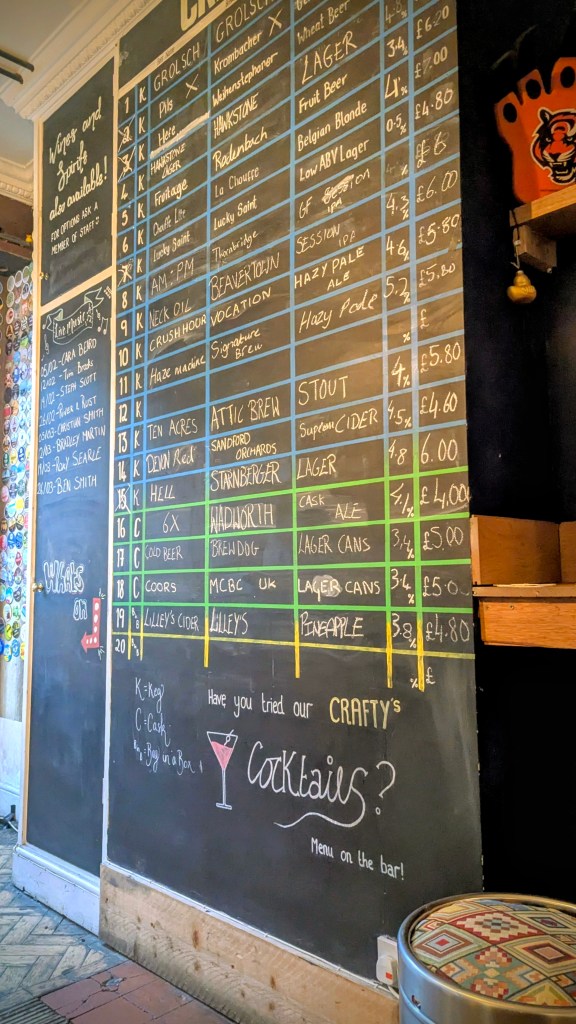 Wines and
Spirits
also available!
FOR OPTIONS ASK A
MEMBER OF STAFF
Live Music
05/02 - CARA BEARD
12/02 - Tom Brooks
19/02 - STEPH SCOTT
26/02 - POWER & RUST
05/03 - CHRISTIAN SMITH
12/03 - BRADLEY MARTIN
19/03 - RORY SEARLE
26/03 - BEN SMITH
WHATS
ON
K GROLSCH GROLSCH £6.20
1 K Pils X Krombacher X Wheat Beer 3.4% £7.00
2 K Here Weihenstephaner LAGER 4% £4.80
3 K HAWKSTONE LAGER HAWKSTONE Fruit Beer 0.5% £6
4 K Fruitage Rodenbach Belgian Blonde £6.00
5 K Chouffe Lite La Chouffe Low ABV Lager 4.3% £5.80
6 K Lucky Saint Lucky Saint GF IPA 4.6% £5.80
7 K AM:PM Thornbridge SESSION IPA 5.2% £
8 K NECK OIL BEAVERTOWN HAZY PALE ALE % £5.80
9 K CRUSH HOUR VOCATION Hazy Pale 4% £4.60
10 K Haze machine Signature Brew
11 K
12 K TEN ACRES ATTIC BREW STOUT 4.5%
13 K DEVON Red SANDFORD ORCHARDS Supreme CIDER 4.8 6.00
14 K HELL STARNBERGER LAGER 4.1% £4.00
15 K
16 C 6X WADWORTH CASK ALE 3.4% £5.00
17 C COLD BEER BREWDOG LAGER CANS 3.4% £5.0
18 C COORS MCBC UK LAGER CANS
19 BIB LILLEY'S CIDER LILLEY'S PINEAPPLE 3.8% £4.80
20 % £
K = Keg
C = Cask
BIB = Bag in a Box
Have you tried our CRAFTY'S
Cocktails?
Menu on the bar!